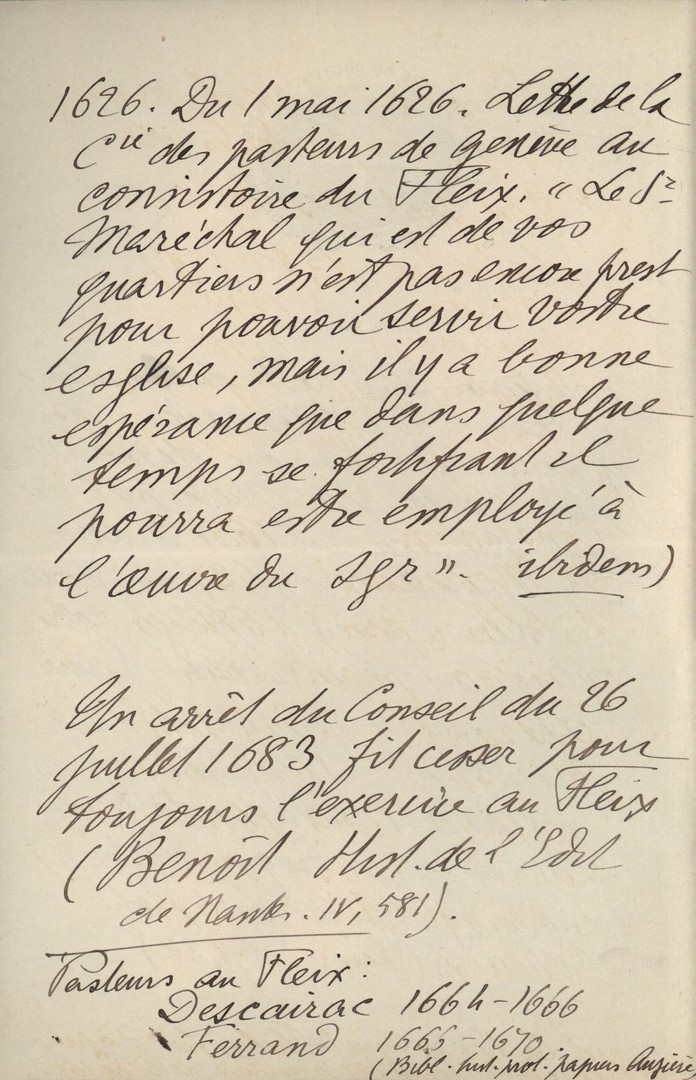 1626. Du 1 mai 1626. Lettre de la
Cie des pasteurs de Genève au
consistoire du Fleix. « Le Sr
Maréchal qui est de vos
quartiers n'est pas encore prest
pour pouvoir servir vostre
esglise, mais il y a bonne
espérance que dans quelque
temps se fortifiant il
pourra estre employé à
l'œuvre du Sgr ». ibidem)
Un arrêt du Conseil du 26
juillet 1683 fit cesser pour
toujours l'exercice au Fleix
(Benoît Hist. de l'Edit
de Nantes. IV, 581).
Pasteurs au Fleix :
Descairac 1664-1666
Ferrand 1666-1670.
(Bibl. hist. prot. papiers Auzière)